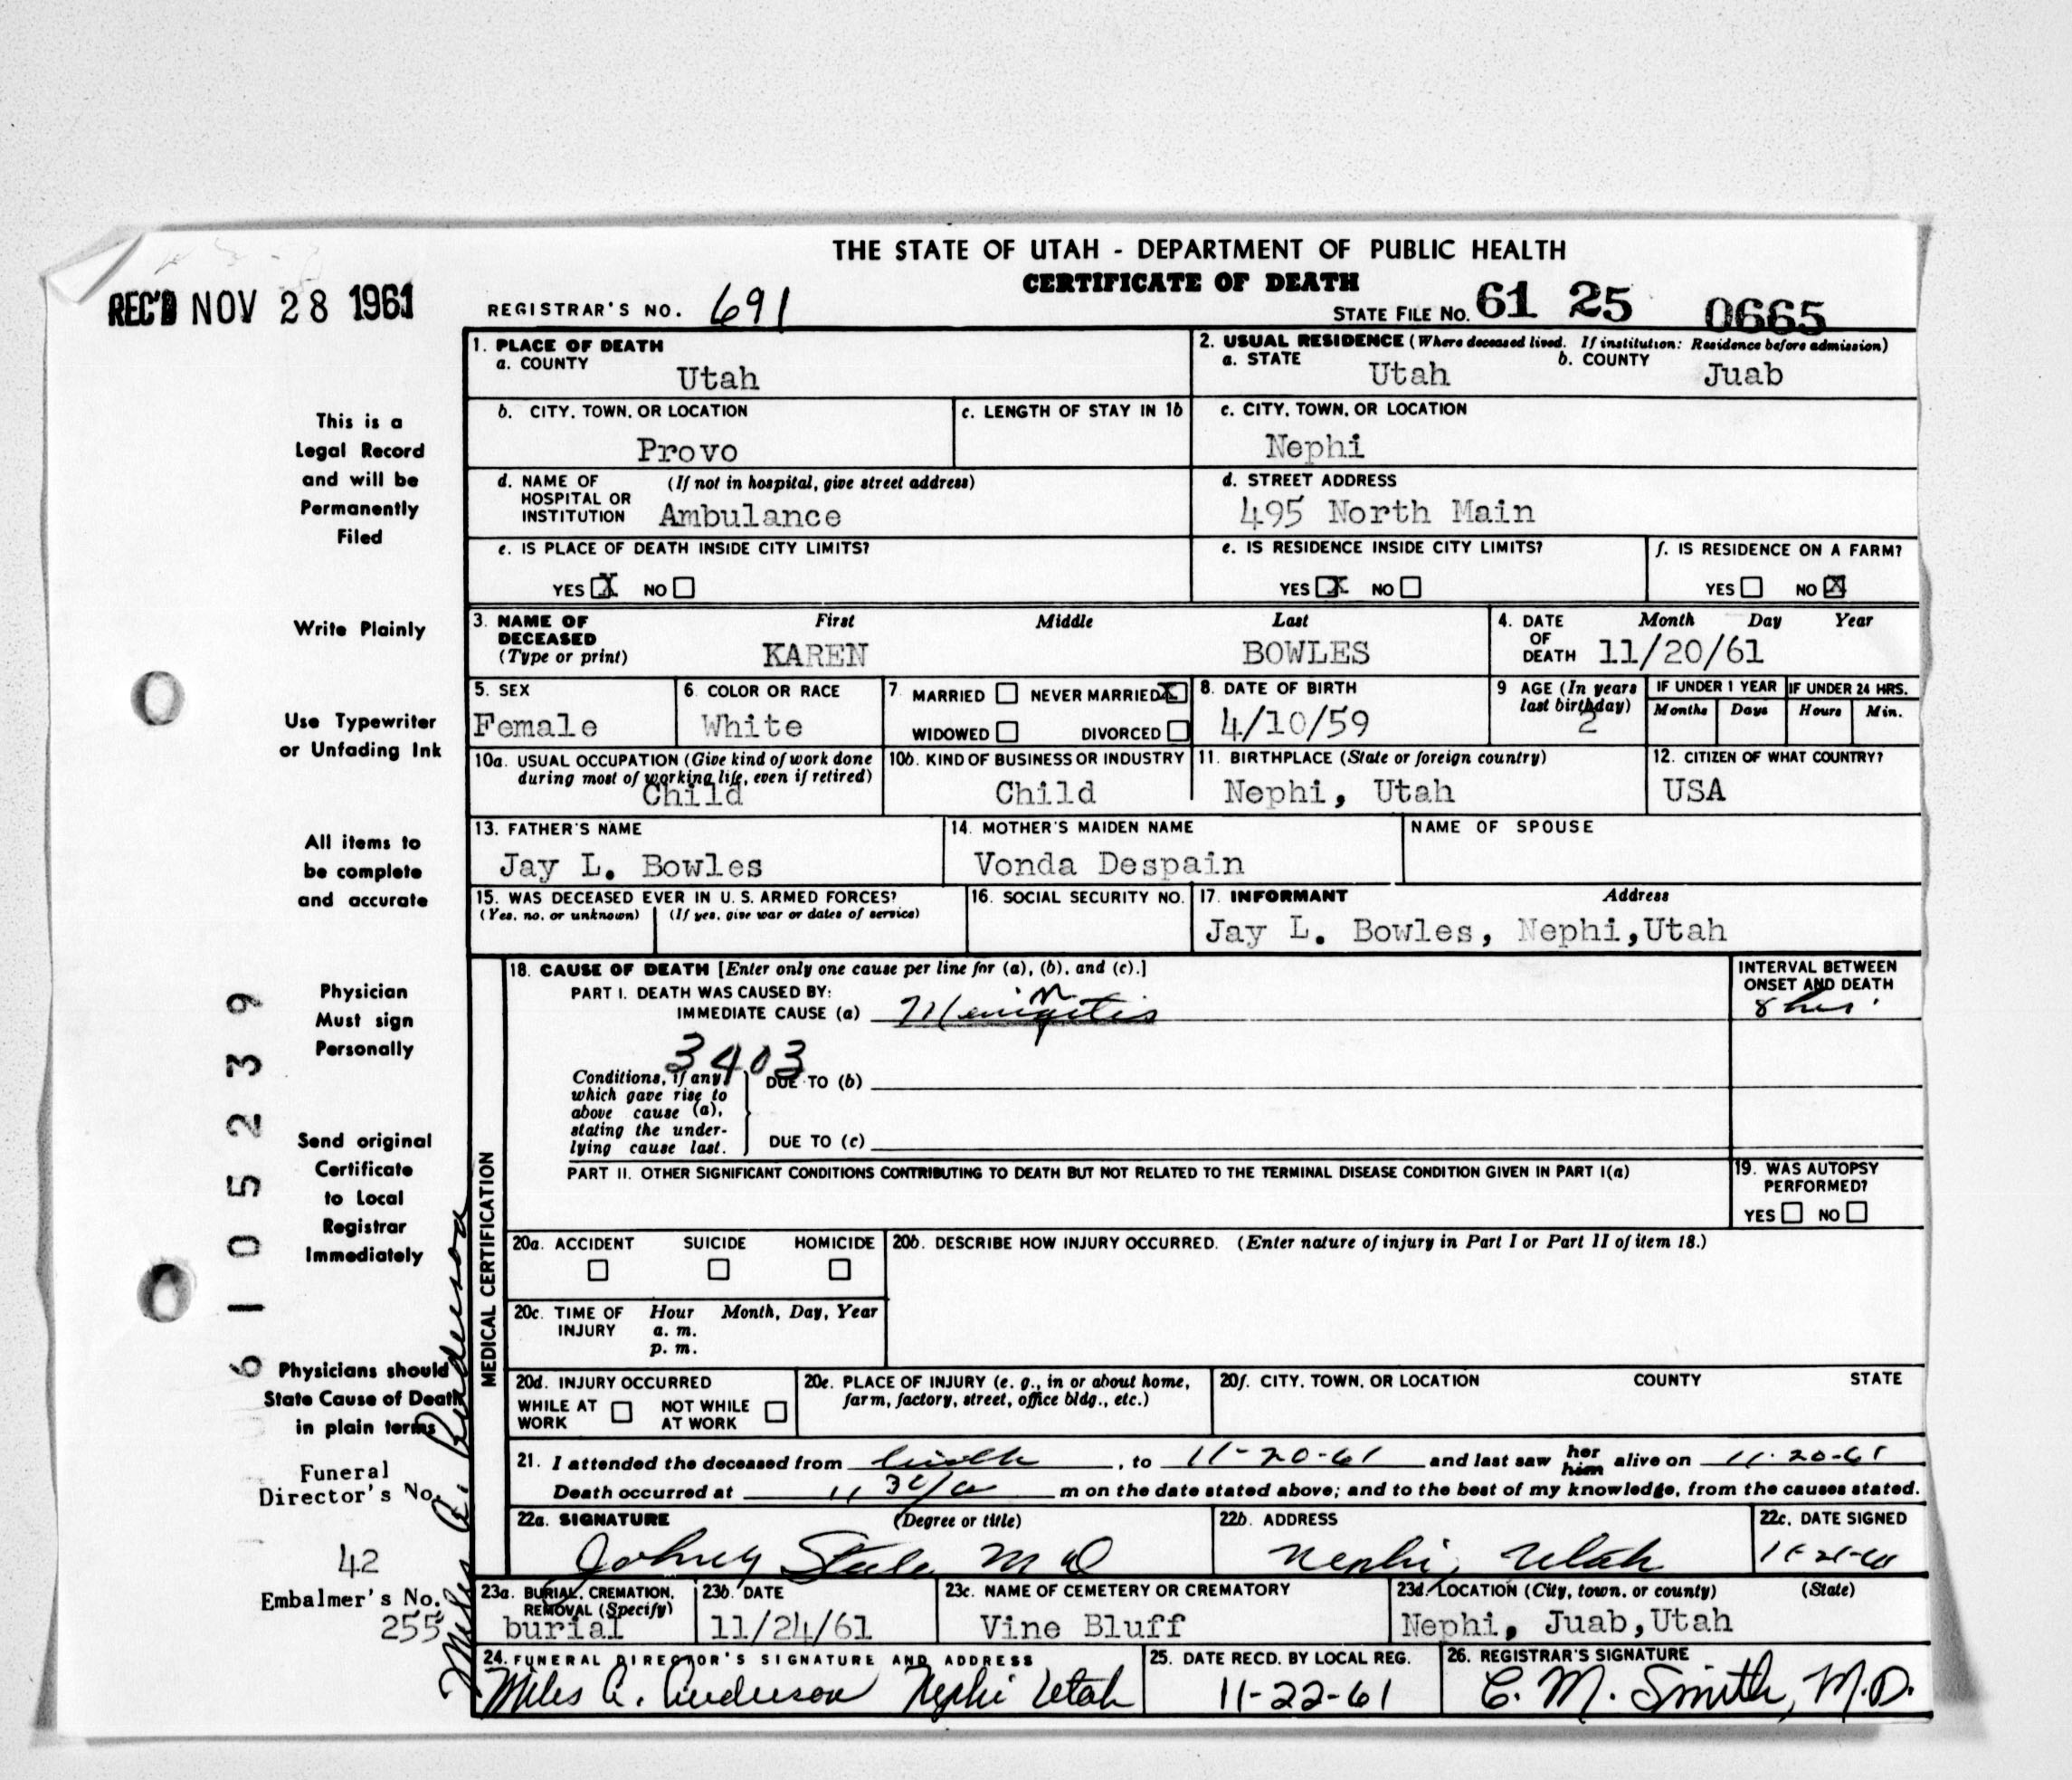 THE STATE OF UTAH - DEPARTMENT OF PUBLIC HEALTH
CERTIFICATE OF DEATH
REC'D NOV 28 1961
REGISTRAR'S NO. 691
STATE FILE NO. 61 25 0665
1. PLACE OF DEATH
a. COUNTY
Utah
2. USUAL RESIDENCE (Where deceased lived. If institution: Residence before admission)
a. STATE
Utah
b. COUNTY
Juab
b. CITY, TOWN, OR LOCATION
Provo
c. LENGTH OF STAY IN 1b
c. CITY, TOWN, OR LOCATION
Nephi
d. NAME OF HOSPITAL OR INSTITUTION
(If not in hospital, give street address)
Ambulance
d. STREET ADDRESS
495 North Main
e. IS PLACE OF DEATH INSIDE CITY LIMITS?
YES X NO
e. IS RESIDENCE INSIDE CITY LIMITS?
YES X NO
f. IS RESIDENCE ON A FARM?
YES NO X
3. NAME OF DECEASED
(Type or print)
First Middle Last
KAREN BOWLES
4. DATE OF DEATH
Month Day Year
11/20/61
5. SEX
Female
6. COLOR OR RACE
White
7. MARRIED NEVER MARRIED X
WIDOWED DIVORCED
8. DATE OF BIRTH
4/10/59
9 AGE (In years last birthday)
2
IF UNDER 1 YEAR
Months Days
IF UNDER 24 HRS.
Hours Min.
10a. USUAL OCCUPATION (Give kind of work done during most of working life, even if retired)
Child
10b. KIND OF BUSINESS OR INDUSTRY
Child
11. BIRTHPLACE (State or foreign country)
Nephi, Utah
12. CITIZEN OF WHAT COUNTRY?
USA
13. FATHER'S NAME
Jay L. Bowles
14. MOTHER'S MAIDEN NAME
Vonda Despain
NAME OF SPOUSE
15. WAS DECEASED EVER IN U. S. ARMED FORCES?
(Yes, no, or unknown) (If yes, give war or dates of service)
16. SOCIAL SECURITY NO.
17. INFORMANT Address
Jay L. Bowles, Nephi,Utah
MEDICAL CERTIFICATION
18. CAUSE OF DEATH [Enter only one cause per line for (a), (b), and (c).]
PART I. DEATH WAS CAUSED BY:
IMMEDIATE CAUSE (a)
INTERVAL BETWEEN ONSET AND DEATH
8 hrs.
3403
Conditions, if any, which gave rise to above cause (a), stating the underlying cause last.
DUE TO (b)
DUE TO (c)
PART II. OTHER SIGNIFICANT CONDITIONS CONTRIBUTING TO DEATH BUT NOT RELATED TO THE TERMINAL DISEASE CONDITION GIVEN IN PART I(a)
19. WAS AUTOPSY PERFORMED?
YES NO
20a. ACCIDENT SUICIDE HOMICIDE
20b. DESCRIBE HOW INJURY OCCURRED. (Enter nature of injury in Part I or Part II of item 18.)
20c. TIME OF INJURY
Hour Month, Day, Year
a. m.
p. m.
20d. INJURY OCCURRED
WHILE AT WORK
NOT WHILE AT WORK
20e. PLACE OF INJURY (e. g., in or about home, farm, factory, street, office bldg., etc.)
20f. CITY, TOWN, OR LOCATION COUNTY STATE
21. I attended the deceased from birth, to 11-20-61 and last saw her him alive on 11-20-61
Death occurred at 11 30/a m on the date stated above; and to the best of my knowledge, from the causes stated.
22a. SIGNATURE (Degree or title)
M D
22b. ADDRESS
Nephi, Utah
22c. DATE SIGNED
23a. BURIAL, CREMATION, REMOVAL (Specify)
burial
23b. DATE
11/24/61
23c. NAME OF CEMETERY OR CREMATORY
Vine Bluff
23d. LOCATION (City, town, or county) (State)
Nephi, Juab,Utah
24. FUNERAL DIRECTOR'S SIGNATURE AND ADDRESS
Miles A. Anderson Nephi Utah
25. DATE RECD. BY LOCAL REG.
11-22-61
26. REGISTRAR'S SIGNATURE
C. M. Smith, M.D.
This is a
Legal Record
and will be
Permanently
Filed
Write Plainly
Use Typewriter
or Unfading Ink
All items to
be complete
and accurate
Physician
Must sign
Personally
Send original
Certificate
to Local
Registrar
Immediately
Physicians should
State Cause of Death
in plain terms
Funeral
Director's No.
42
Embalmer's No.
255
Miles A. Anderson
6105239